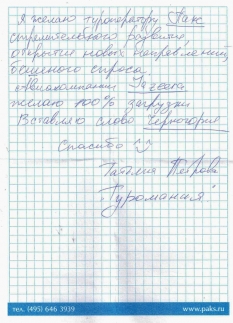 Я желаю туроператору Пакс
стремительного развития,
открытия новых направлений,
бешеного спроса
Авиакомпании
желаю 100% загрузки
Вставляю слово Черногория
Спасибо
Наталия Петрова
"Туромания"
тел. (495) 646 3939
www.paks.ru